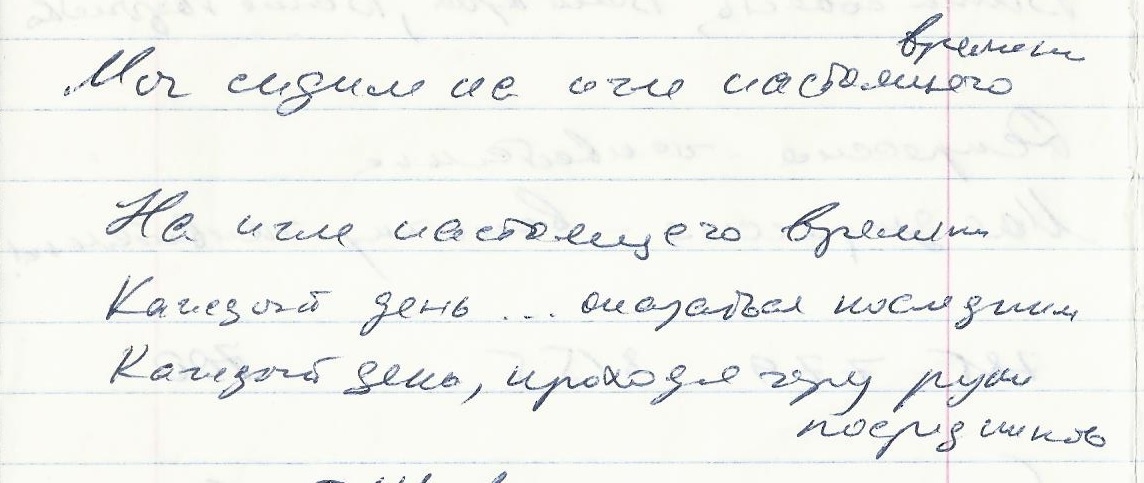 Мы сидим на игле настоящего времени
На игле настоящего времени
Каждый день ... оказаться последним
Каждый день, проходя через руки
посредников